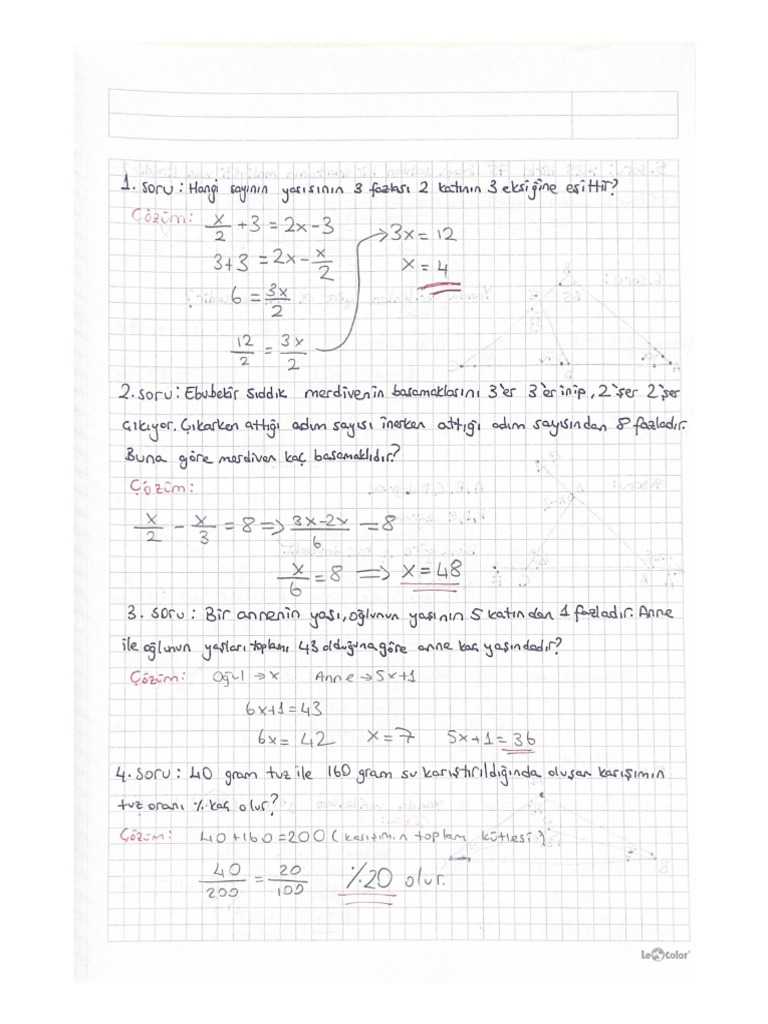 1. soru: Hangi sayının yarısının 3 fazlası 2 katının 3 eksiğine eşittir?
Çözüm:
x/2 + 3 = 2x - 3
3+3 = 2x - x/2
6 = 3x/2
12/2 = 3x/2
→ 3x = 12
x = 4
2. soru: Ebubekir Sıddık merdivenin basamaklarını 3'er 3'er inip, 2'şer 2'şer
çıkıyor. Çıkarken attığı adım sayısı inerken attığı adım sayısından 8 fazladır.
Buna göre merdiven kaç basamaklıdır?
Çözüm:
x/2 - x/3 = 8 ⇒ 3x-2x/6 = 8
x/6 = 8 ⇒ x = 48
3. soru: Bir annenin yaşı, oğlunun yaşının 5 katından 1 fazladır. Anne
ile oğlunun yaşları toplamı 43 olduğuna göre anne kaç yaşındadır?
Çözüm: Oğul → x Anne → 5x+1
6x+1 = 43
6x = 42 x = 7 5x+1 = 36
4. soru: 40 gram tuz ile 160 gram su karıştırıldığında oluşan karışımın
tuz oranı % kaç olur?
Çözüm: 40+160=200 (karışımın toplam kütlesi)
40/200 = 20/100 %20 olur.
Le Color